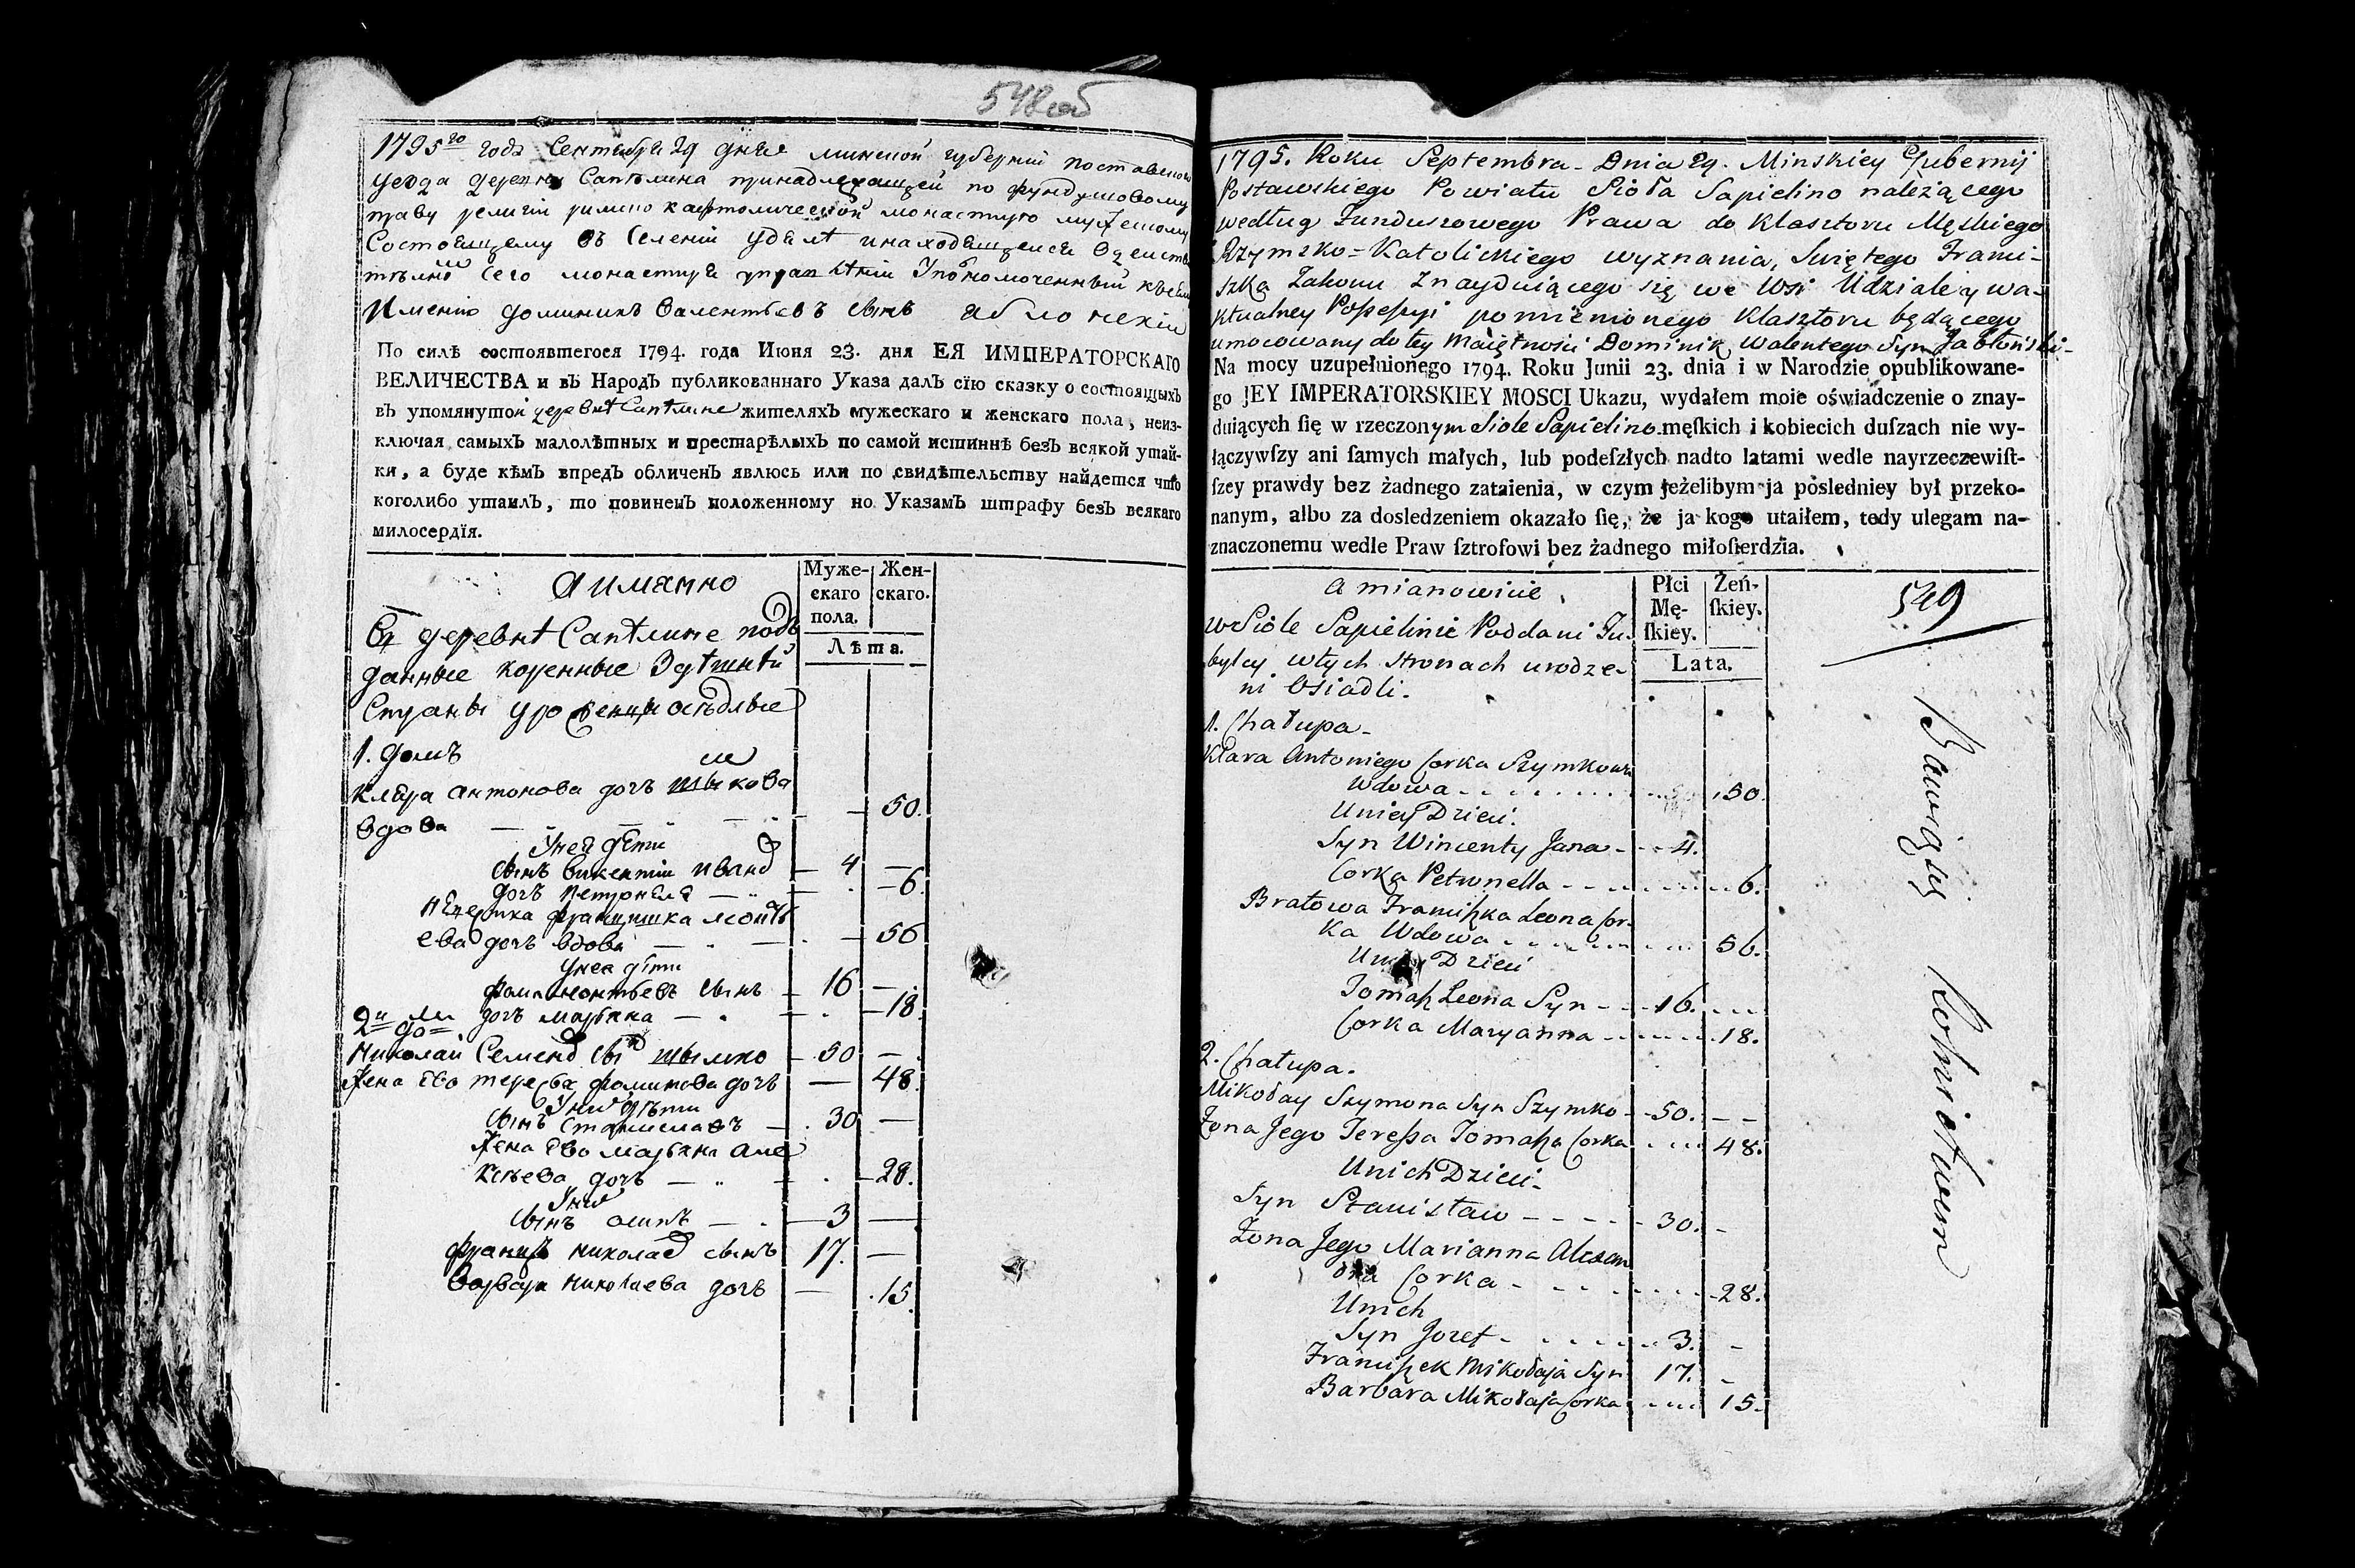 548об
1795го года Сентября 29 дня минской губернии поставского
уезда деревни Сапѣлина принадлежащей по фундушовому
праву религии римско католической монастырю мужескому
Состоящему въ Селении Удѣлѣ и находящемся
сего монастыря Уполномоченный
Имению доминикъ валентьевъ сынъ яблонскии
По силѣ состоявшегося 1794. года Июня 23. дня ЕЯ ИМПЕРАТОРСКАГО
ВЕЛИЧЕСТВА и въ Народъ публикованнаго Указа далъ сїю сказку о состоящыхъ
въ упомянутой деревнѣ Сапѣлине жителяхъ мужескаго и женскаго пола, неиз-
ключая самыхъ малолѣтныхъ и престарѣлыхъ по самой истиннѣ безъ всякой утай-
ки, а буде кѣмъ впредъ обличенъ явлюсь или по свидѣтельству найдется что
коголибо утаилъ, то повиненъ положенному по Указамъ штрафу безъ всякаго
милосердїя.
а имянно
Муже-
скаго
пола.
Жен-
скаго.
Лѣта.
Въ деревнѣ Сапѣлине подъ
данные коренные Здѣшнѣй
Страны осѣдлые
1. домъ
Клара антонова дочъ шымкова
вдова 50.
У нея дѣти
Сынъ викентии ивана 4
дочъ петронеля 6.
невестка францишка
ева дочъ вдова 56
У нея дѣти
фома леонтьевъ сынъ 16
дочъ марьяна 18.
2й домъ
Николай Семена сынъ шымко 50
Жена Ево тереса фоминова дочъ 48.
У них дѣти
Сынъ Станиславъ 30
Жена Ево марьяна але
ксѣева дочъ 28.
У них
Сынъ осипъ 3
францъ николая сынъ 17.
варвара николаева дочъ 15.
1795. Roku Septembra Dnia 29. Minskiey Gubernij
Postawskiego Powiatu Sioła Sapielino należącego
według Funduszowego Prawa do Klasztoru Męskiego
Rzymsko-Katolickiego wyznania, Swiętego Franci-
szka Zakonu Znayduiącego się we Wsi Udziale y wa-
ktualney Possessyi pomienionego Klasztoru będącego
umocowany do tey Maiętnosci Dominik Walentego Syn Jabłoński-
Na mocy uzupełnionego 1794. Roku Junii 23. dnia i w Narodzie opublikowane-
go JEY IMPERATORSKIEY MOSCI Ukazu, wydałem moie oświadczenie o znay-
duiących ſię w rzeczonym Siole Sapielino męſkich i kobiecich duſzach nie wy-
łączywſzy ani ſamych małych, lub podeſzłych nadto latami wedle nayrzeczewiſt-
ſzey prawdy bez żadnego zataienia, w czym jeżelibym ja posledniey był przeko-
nanym, albo za dosledzeniem okazało ſię, że ja kogo utaiłem, tedy ulegam na-
znaczonemu wedle Praw ſztrofowi bez żadnego miłoſierdzia.
a mianowicie
Płci
Mę-
ſkiey.
Żeń-
ſkiey.
Lata.
549
w Siole Sapielinie Poddani Tu-
bylcy w tych stronach urodze-
ni Osiadli.
1. Chałupa-
Klara Antoniego Corka Szymkowa
Wdowa 50.
U niey Dzieci.
Syn Wincenty Jana 4.
Corka Petronella 6.
Bratowa Franciszka Leona Cor-
ka Wdowa 56.
U niey Dzieci
Tomasz Leona Syn 16.
Corka Maryanna 18.
2. Chałupa.
Mikołay Szymona Syn Szymko 50.
Żona Jego Teressa Tomasza Corka 48.
U nich Dzieci-
Syn Stanisław 30.
Żona Jego Marianna Alexan
dra Corka 28.
U nich
Syn Jozef 3.
Franciszek Mikołaja Syn 17.
Barbara Mikołaja Corka 15.
Bawiąsię Rolnictwem